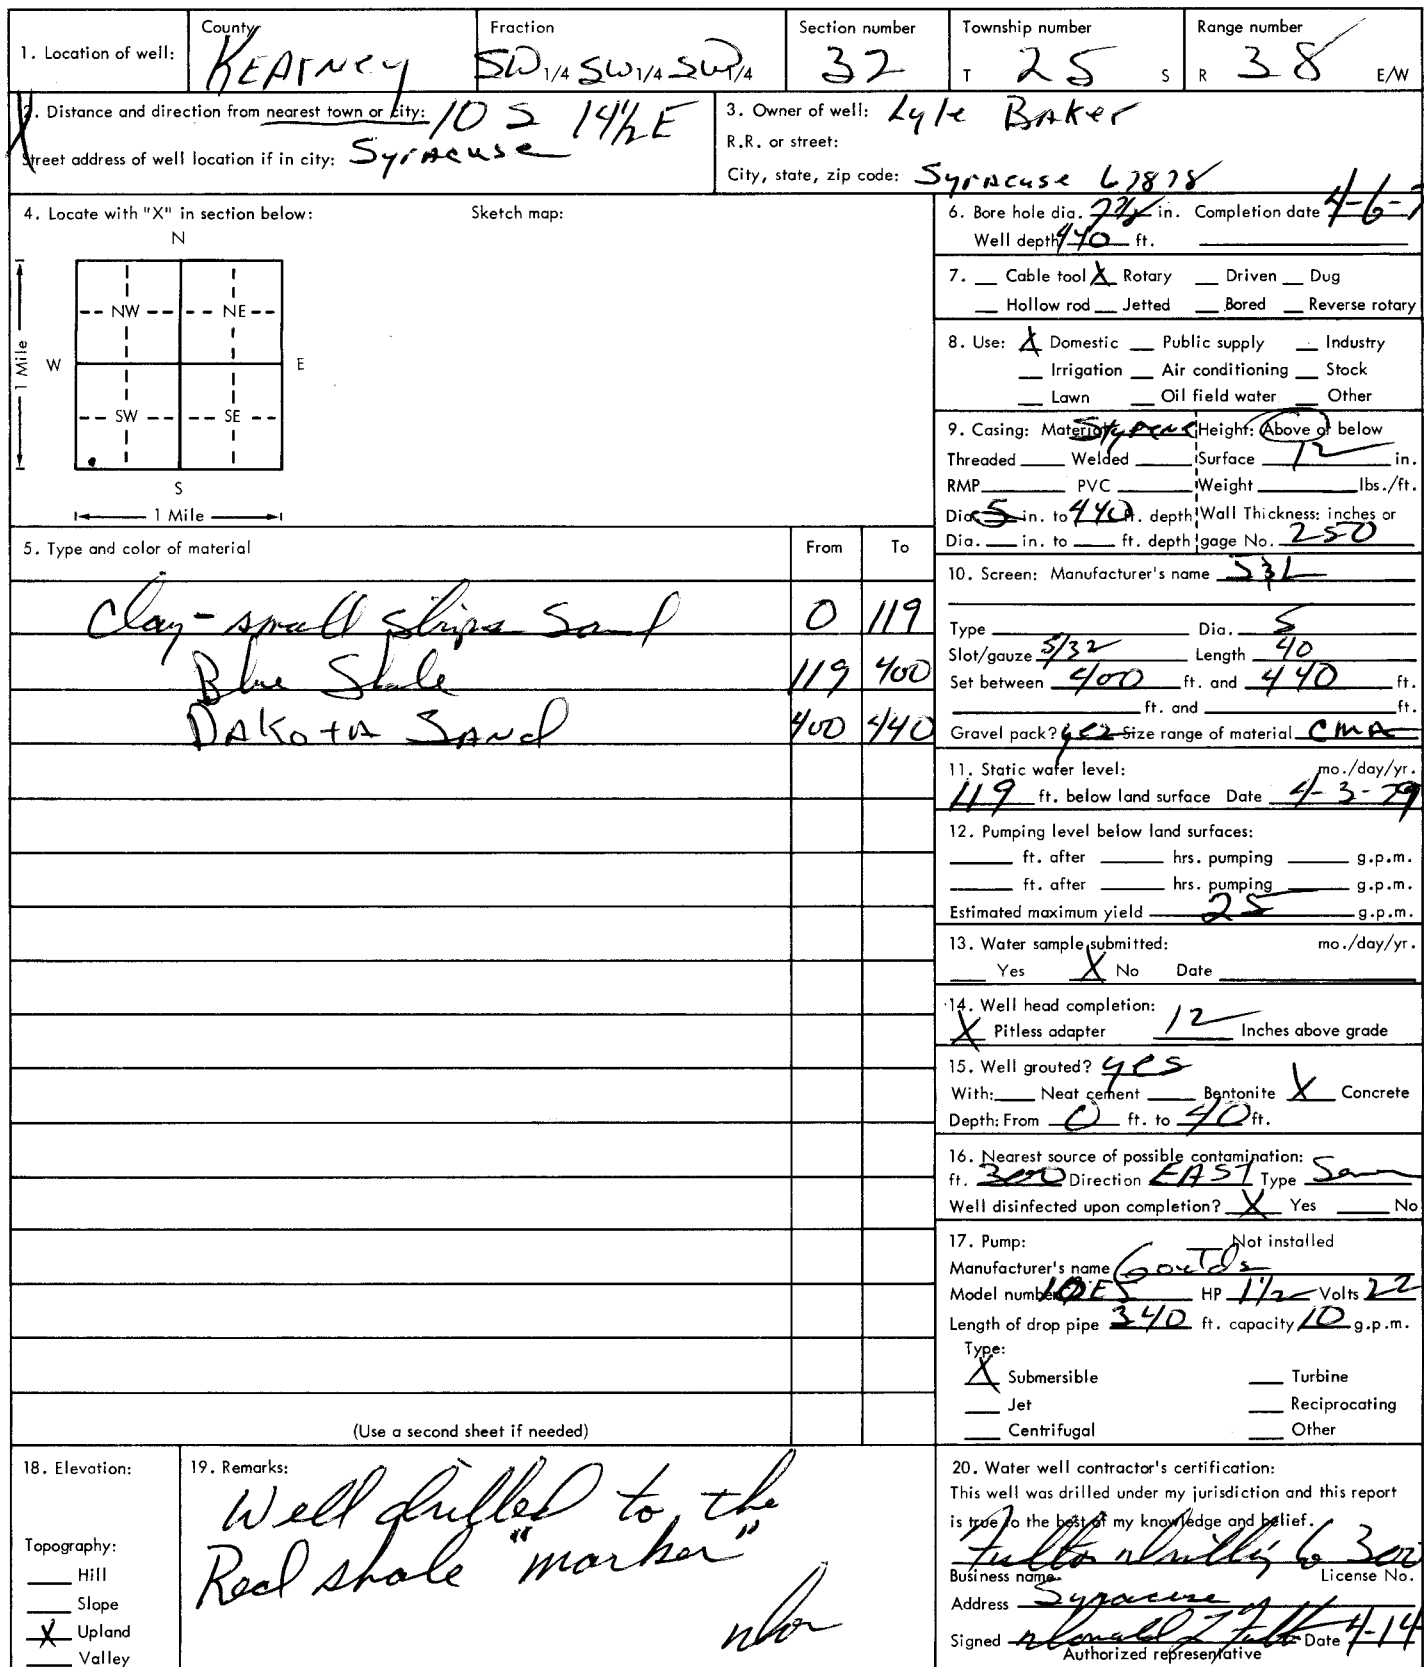 1. Location of well: County KEARNEY Fraction SW 1/4 SW 1/4 SW 1/4 Section number 32 Township number T 25 S Range number R 38 E/W
2. Distance and direction from nearest town or city: 10 S 14 1/2 E
Street address of well location if in city: Syracuse
3. Owner of well: Lyle Baker
R.R. or street:
City, state, zip code: Syracuse 67878
4. Locate with "X" in section below: Sketch map:
N
NW NE
W E
1 Mile
SW SE
S
1 Mile
5. Type and color of material From To
Clay - small strips Sand 0 119
Blue Shale 119 400
DAKOTA SAND 400 440
(Use a second sheet if needed)
6. Bore hole dia. 7 7/8 in. Completion date 4-6-7
Well depth 440 ft.
7. Cable tool X Rotary Driven Dug
Hollow rod Jetted Bored Reverse rotary
8. Use: X Domestic Public supply Industry
Irrigation Air conditioning Stock
Lawn Oil field water Other
9. Casing: Material Styrene Height: Above or below
Threaded Welded Surface 12 in.
RMP PVC Weight lbs./ft.
Dia. 5 in. to 440 ft. depth Wall Thickness: inches or
Dia. in. to ft. depth gage No. 250
10. Screen: Manufacturer's name
Type Dia. 5
Slot/gauze 5/32 Length 40
Set between 400 ft. and 440 ft.
ft. and ft.
Gravel pack? yes Size range of material CMA
11. Static water level: mo./day/yr.
119 ft. below land surface Date 4-3-79
12. Pumping level below land surfaces:
ft. after hrs. pumping g.p.m.
ft. after hrs. pumping g.p.m.
Estimated maximum yield 25 g.p.m.
13. Water sample submitted: mo./day/yr.
Yes X No Date
14. Well head completion:
X Pitless adapter 12 Inches above grade
15. Well grouted? yes
With: Neat cement Bentonite X Concrete
Depth: From 0 ft. to 40 ft.
16. Nearest source of possible contamination:
ft. 300 Direction EAST Type
Well disinfected upon completion? X Yes No
17. Pump: Not installed
Manufacturer's name Goulds
Model number HP 1 1/2 Volts 22
Length of drop pipe 340 ft. capacity 10 g.p.m.
Type:
X Submersible Turbine
Jet Reciprocating
Centrifugal Other
18. Elevation:
Topography:
Hill
Slope
X Upland
Valley
19. Remarks:
Well drilled to the
Red shale "marker"
20. Water well contractor's certification:
This well was drilled under my jurisdiction and this report
is true to the best of my knowledge and belief.
Fulton Drilling Co 300
Business name License No.
Address Syracuse
Signed Donald Date 4-14-
Authorized representative